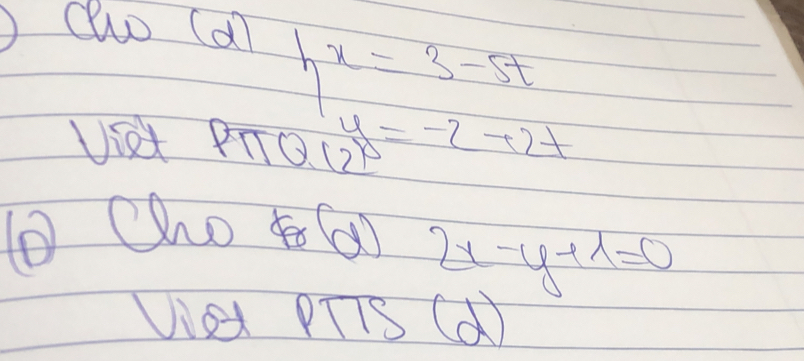 ) Cho (d) { x = 3 - 5t
y = -2 + 2t
Viết PTTQ (2)
6) Cho (d) 2x - y + 1 = 0
Viết PTTS (d)